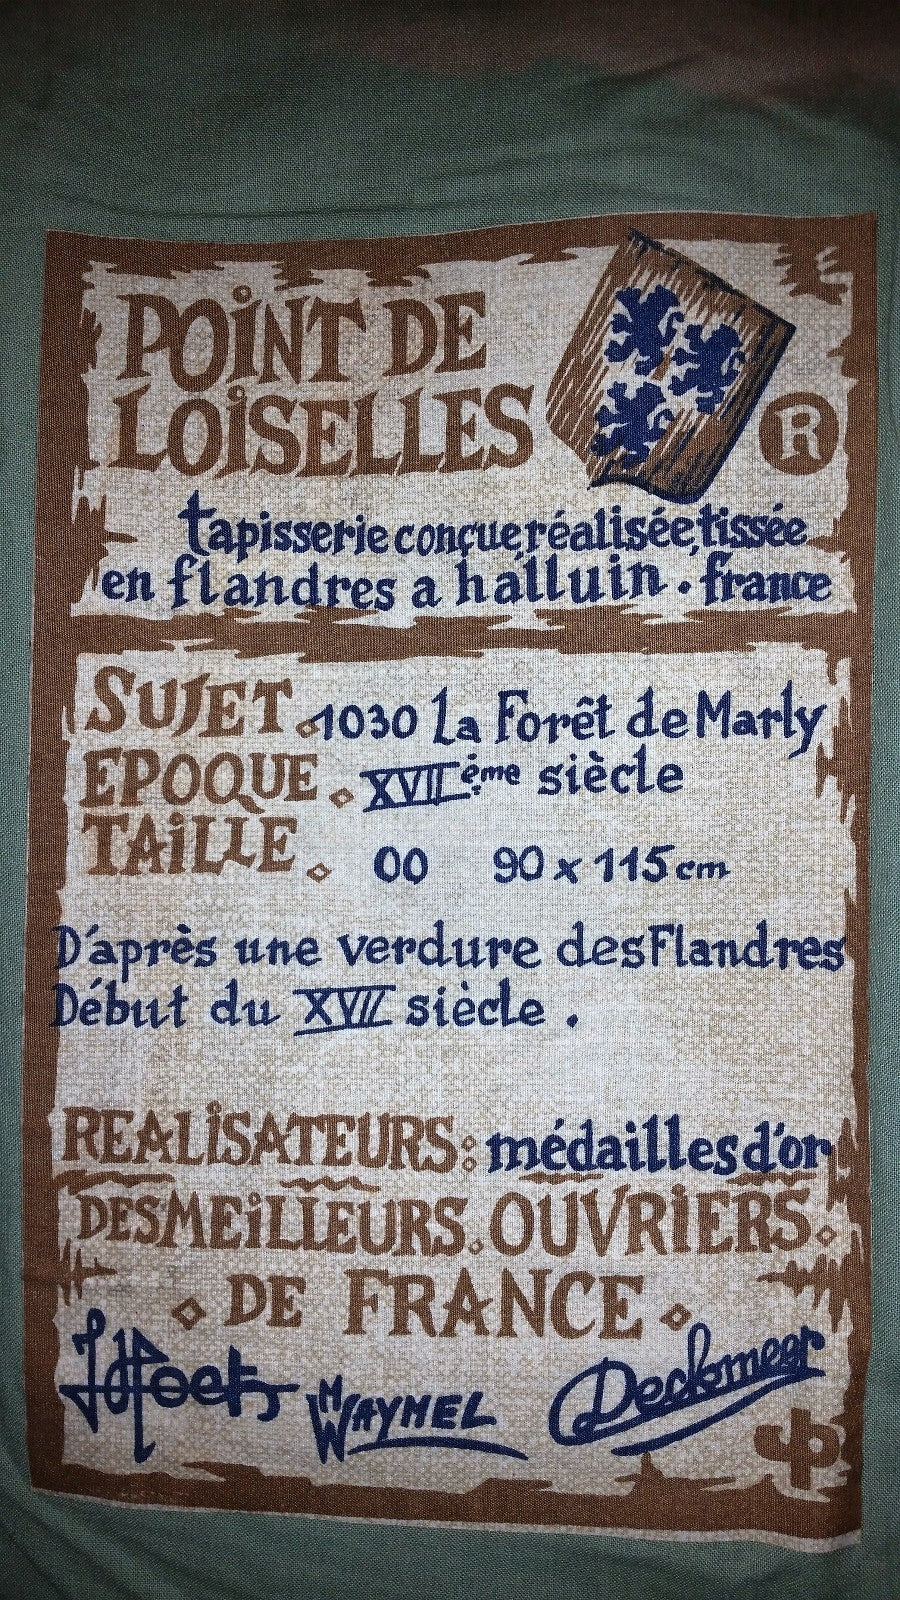 POINT DE
LOISELLES
R
tapisserie conçue, réalisée, tissée
en flandres a halluin . france
SUJET . 1030 La Forêt de Marly
EPOQUE . XVII ème siècle
TAILLE . 00 90 x 115 cm
D'après une verdure des Flandres
Début du XVII siècle .
REALISATEURS : médailles d'or
DES MEILLEURS . OUVRIERS .
DE FRANCE
WAYMEL Deckmeer
JP